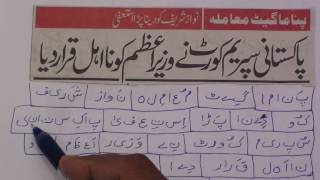 پناما گیٹ معاملہ
نواز شریف کو دینا پڑا استعفیٰ
پاکستانی سپریم کورٹ نے وزیر اعظم کو نا اہل قرار دیا
پ ن ا م ا گ ی ٹ م ع ا م ل ہ ن و ا ز ش ر ی ف
ک و د ی ن ا پ ڑ ا ا س ت ع ف یٰ پ ا ک س ت ا ن ی
س پ ر ی م ک و ر ٹ ن ے و ز ی ر ا ع ظ م ک و
ن ا ا ہ ل ق ر ا ر د ی ا